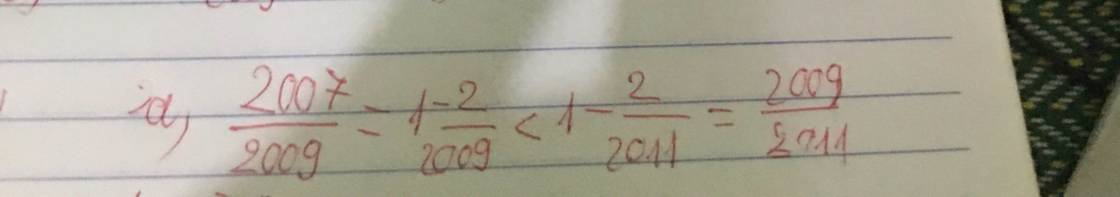 a, 2007/2009 = 1 - 2/2009 < 1 - 2/2011 = 2009/2011